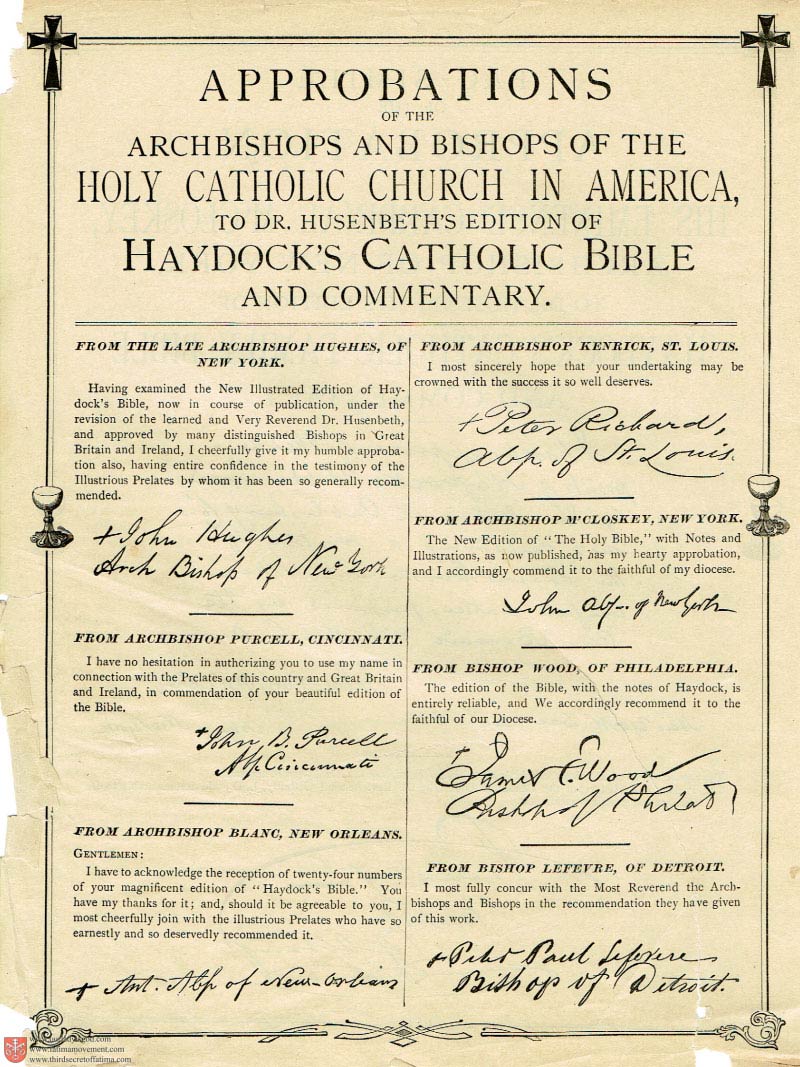 APPROBATIONS
OF THE
ARCHBISHOPS AND BISHOPS OF THE
HOLY CATHOLIC CHURCH IN AMERICA,
TO DR. HUSENBETH'S EDITION OF
HAYDOCK'S CATHOLIC BIBLE
AND COMMENTARY.
FROM THE LATE ARCHBISHOP HUGHES, OF
NEW YORK.
Having examined the New Illustrated Edition of Hay-
dock's Bible, now in course of publication, under the
revision of the learned and Very Reverend Dr. Husenbeth,
and approved by many distinguished Bishops in Great
Britain and Ireland, I cheerfully give it my humble approba-
tion also, having entire confidence in the testimony of the
Illustrious Prelates by whom it has been so generally recom-
mended.
+John Hughes
Arch Bishop of New York
FROM ARCHBISHOP PURCELL, CINCINNATI.
I have no hesitation in authorizing you to use my name in
connection with the Prelates of this country and Great Britain
and Ireland, in commendation of your beautiful edition of
the Bible.
+John B. Purcell
Abp Cincinnati
FROM ARCHBISHOP BLANC, NEW ORLEANS.
GENTLEMEN:
I have to acknowledge the reception of twenty-four numbers
of your magnificent edition of "Haydock's Bible." You
have my thanks for it; and, should it be agreeable to you, I
most cheerfully join with the illustrious Prelates who have so
earnestly and so deservedly recommended it.
+ Ant. Abp of New-Orleans
FROM ARCHBISHOP KENRICK, ST. LOUIS.
I most sincerely hope that your undertaking may be
crowned with the success it so well deserves.
+Peter Richard,
Abp. of St. Louis.
FROM ARCHBISHOP M'CLOSKEY, NEW YORK.
The New Edition of "The Holy Bible," with Notes and
Illustrations, as now published, has my hearty approbation,
and I accordingly commend it to the faithful of my diocese.
John Abp. of New York
FROM BISHOP WOOD, OF PHILADELPHIA.
The edition of the Bible, with the notes of Haydock, is
entirely reliable, and We accordingly recommend it to the
faithful of our Diocese.
+James F. Wood
Bishop of Philada
FROM BISHOP LEFEVRE, OF DETROIT.
I most fully concur with the Most Reverend the Arch-
bishops and Bishops in the recommendation they have given
of this work.
+Peter Paul Lefevere
Bishop of Detroit.
www.fatimamovement.com
www.thirdsecretoffatima.com